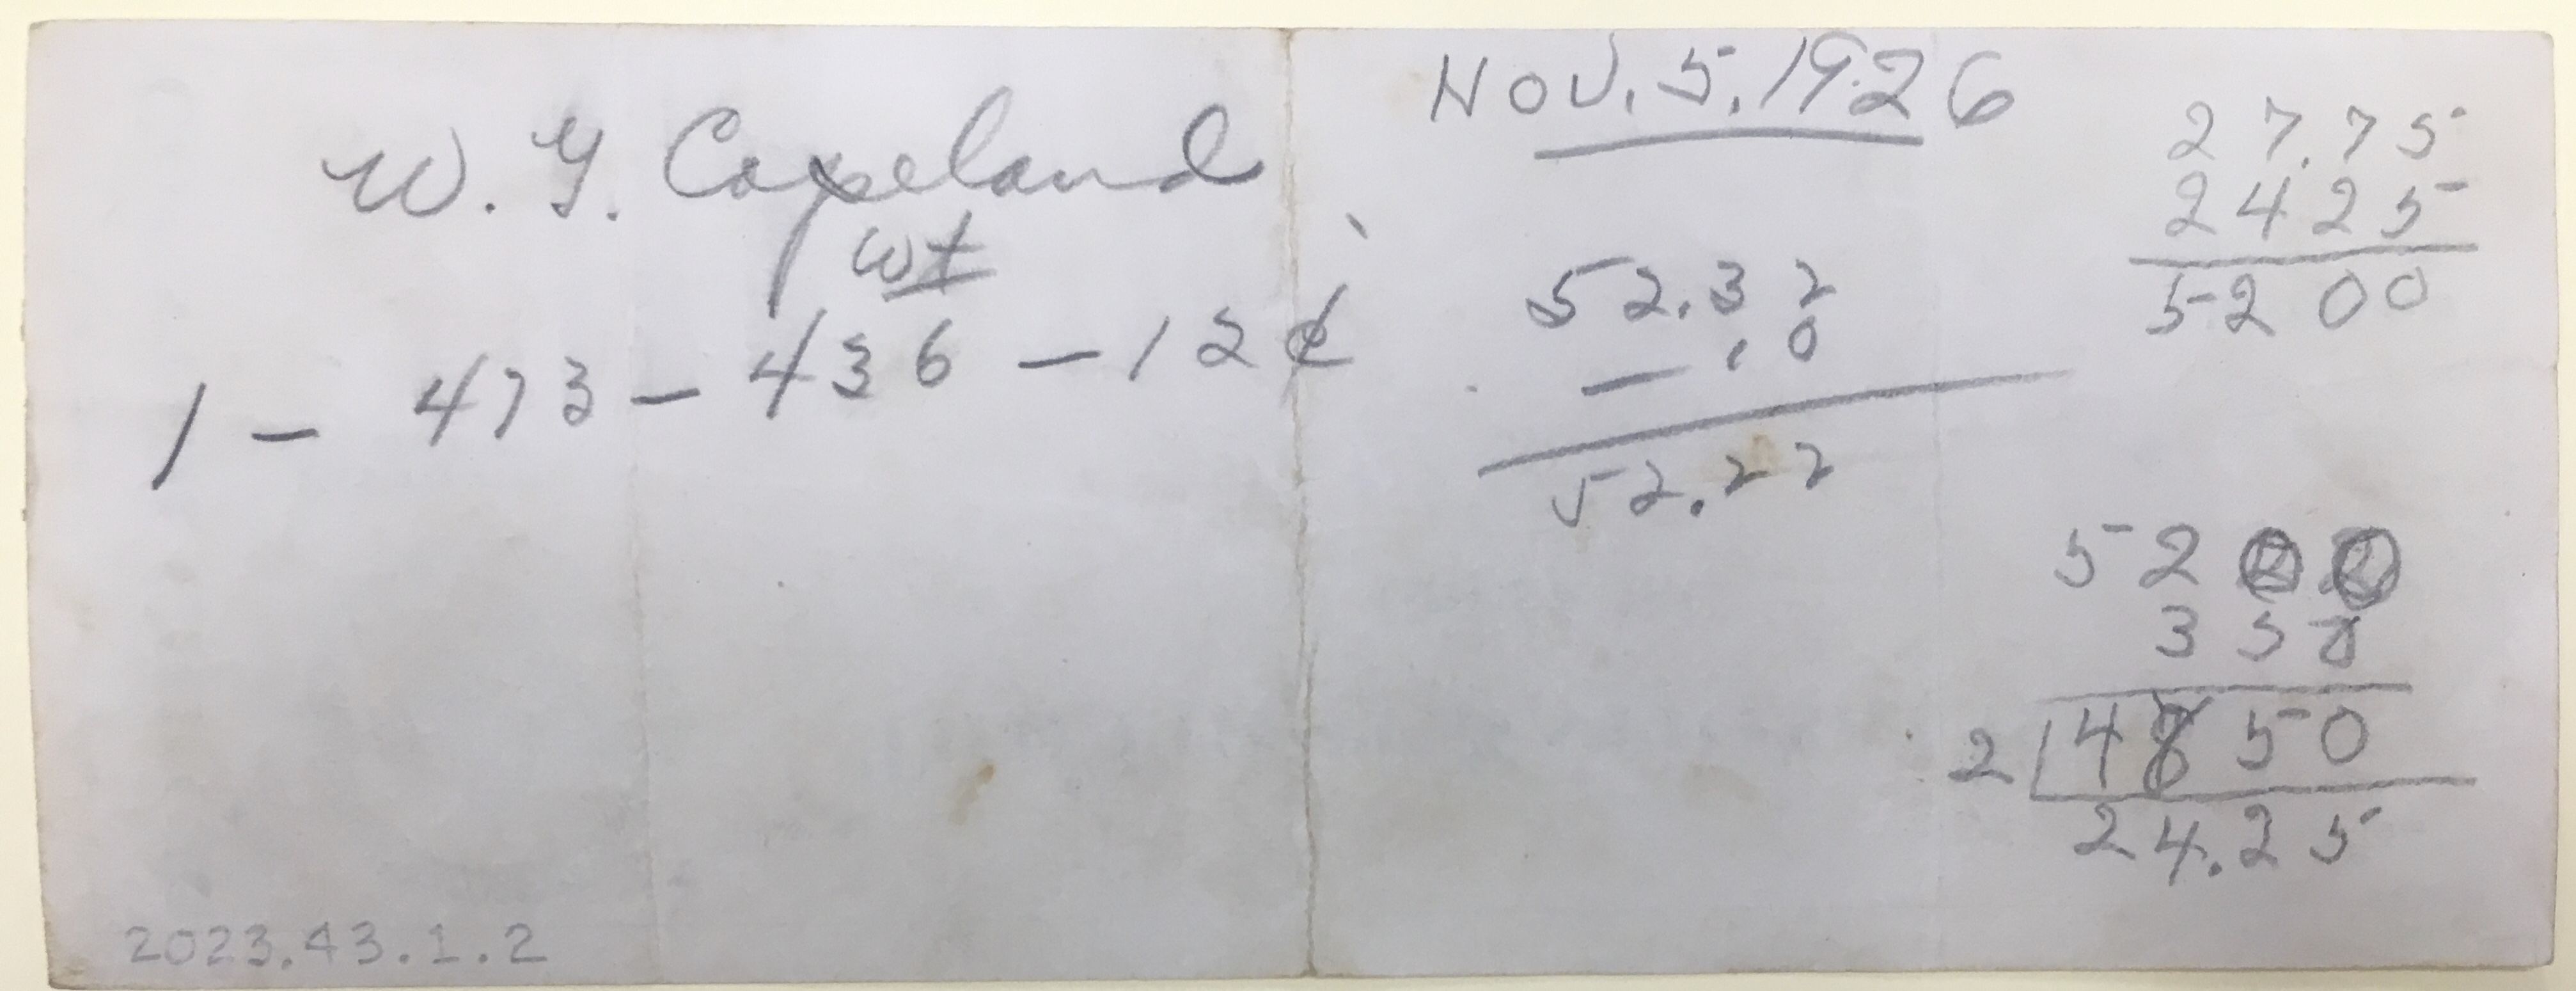 W. G. Copeland
wt
1 - 473 - 436 - 12¢
2023.43.1.2
Nov. 5. 1926
52.32
- .10
52.22
27.75
2425
5200
5200
350
2 4850
24.25